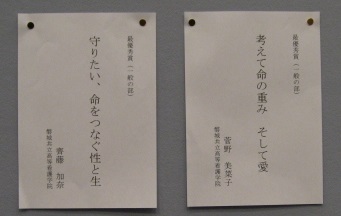 最優秀賞(一般の部)
考えて命の重み そして愛
菅野 美菜子
磐城共立高等看護学院
最優秀賞(一般の部)
守りたい、命をつなぐ性と生
齋藤 加奈
磐城共立高等看護学院